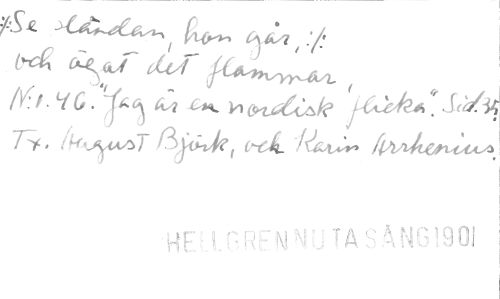 :/: Se sländan, hon går, :/:
och ögat det flammar,
N:o 46. "Jag är en nordisk flicka". Sid. 35.
Tx. August Björk, och Karin Arrhenius.
HELLGREN NUTASÅNG 1901